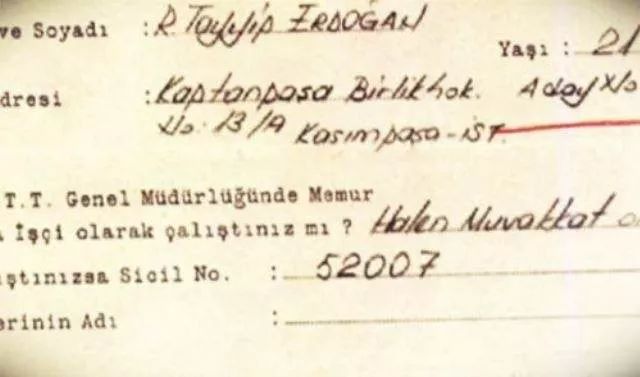 ve Soyadı : R. Tayyip ERDOĞAN
Yaşı : 21
dresi : Kaptanpaşa Birlik Sok. Aday No
No: 13/A Kasımpaşa-İST.
.T.T. Genel Müdürlüğünde Memur
İşçi olarak çalıştınız mı ? Halen Muvakkat
ıştınızsa Sicil No. : 52007
erinin Adı :